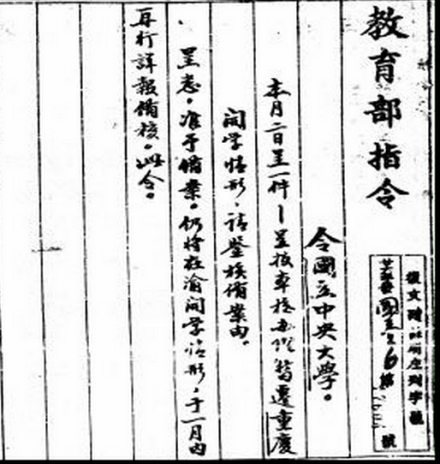 教育部指令
復文時註明左列字號
第 號
令國立中央大學。
本月二日呈一件—呈報本校遷重慶
開學情形，請鑒核備案由。
呈悉。准予備案。仍將在渝開學情形，于一月內
再行詳報備核。此令。